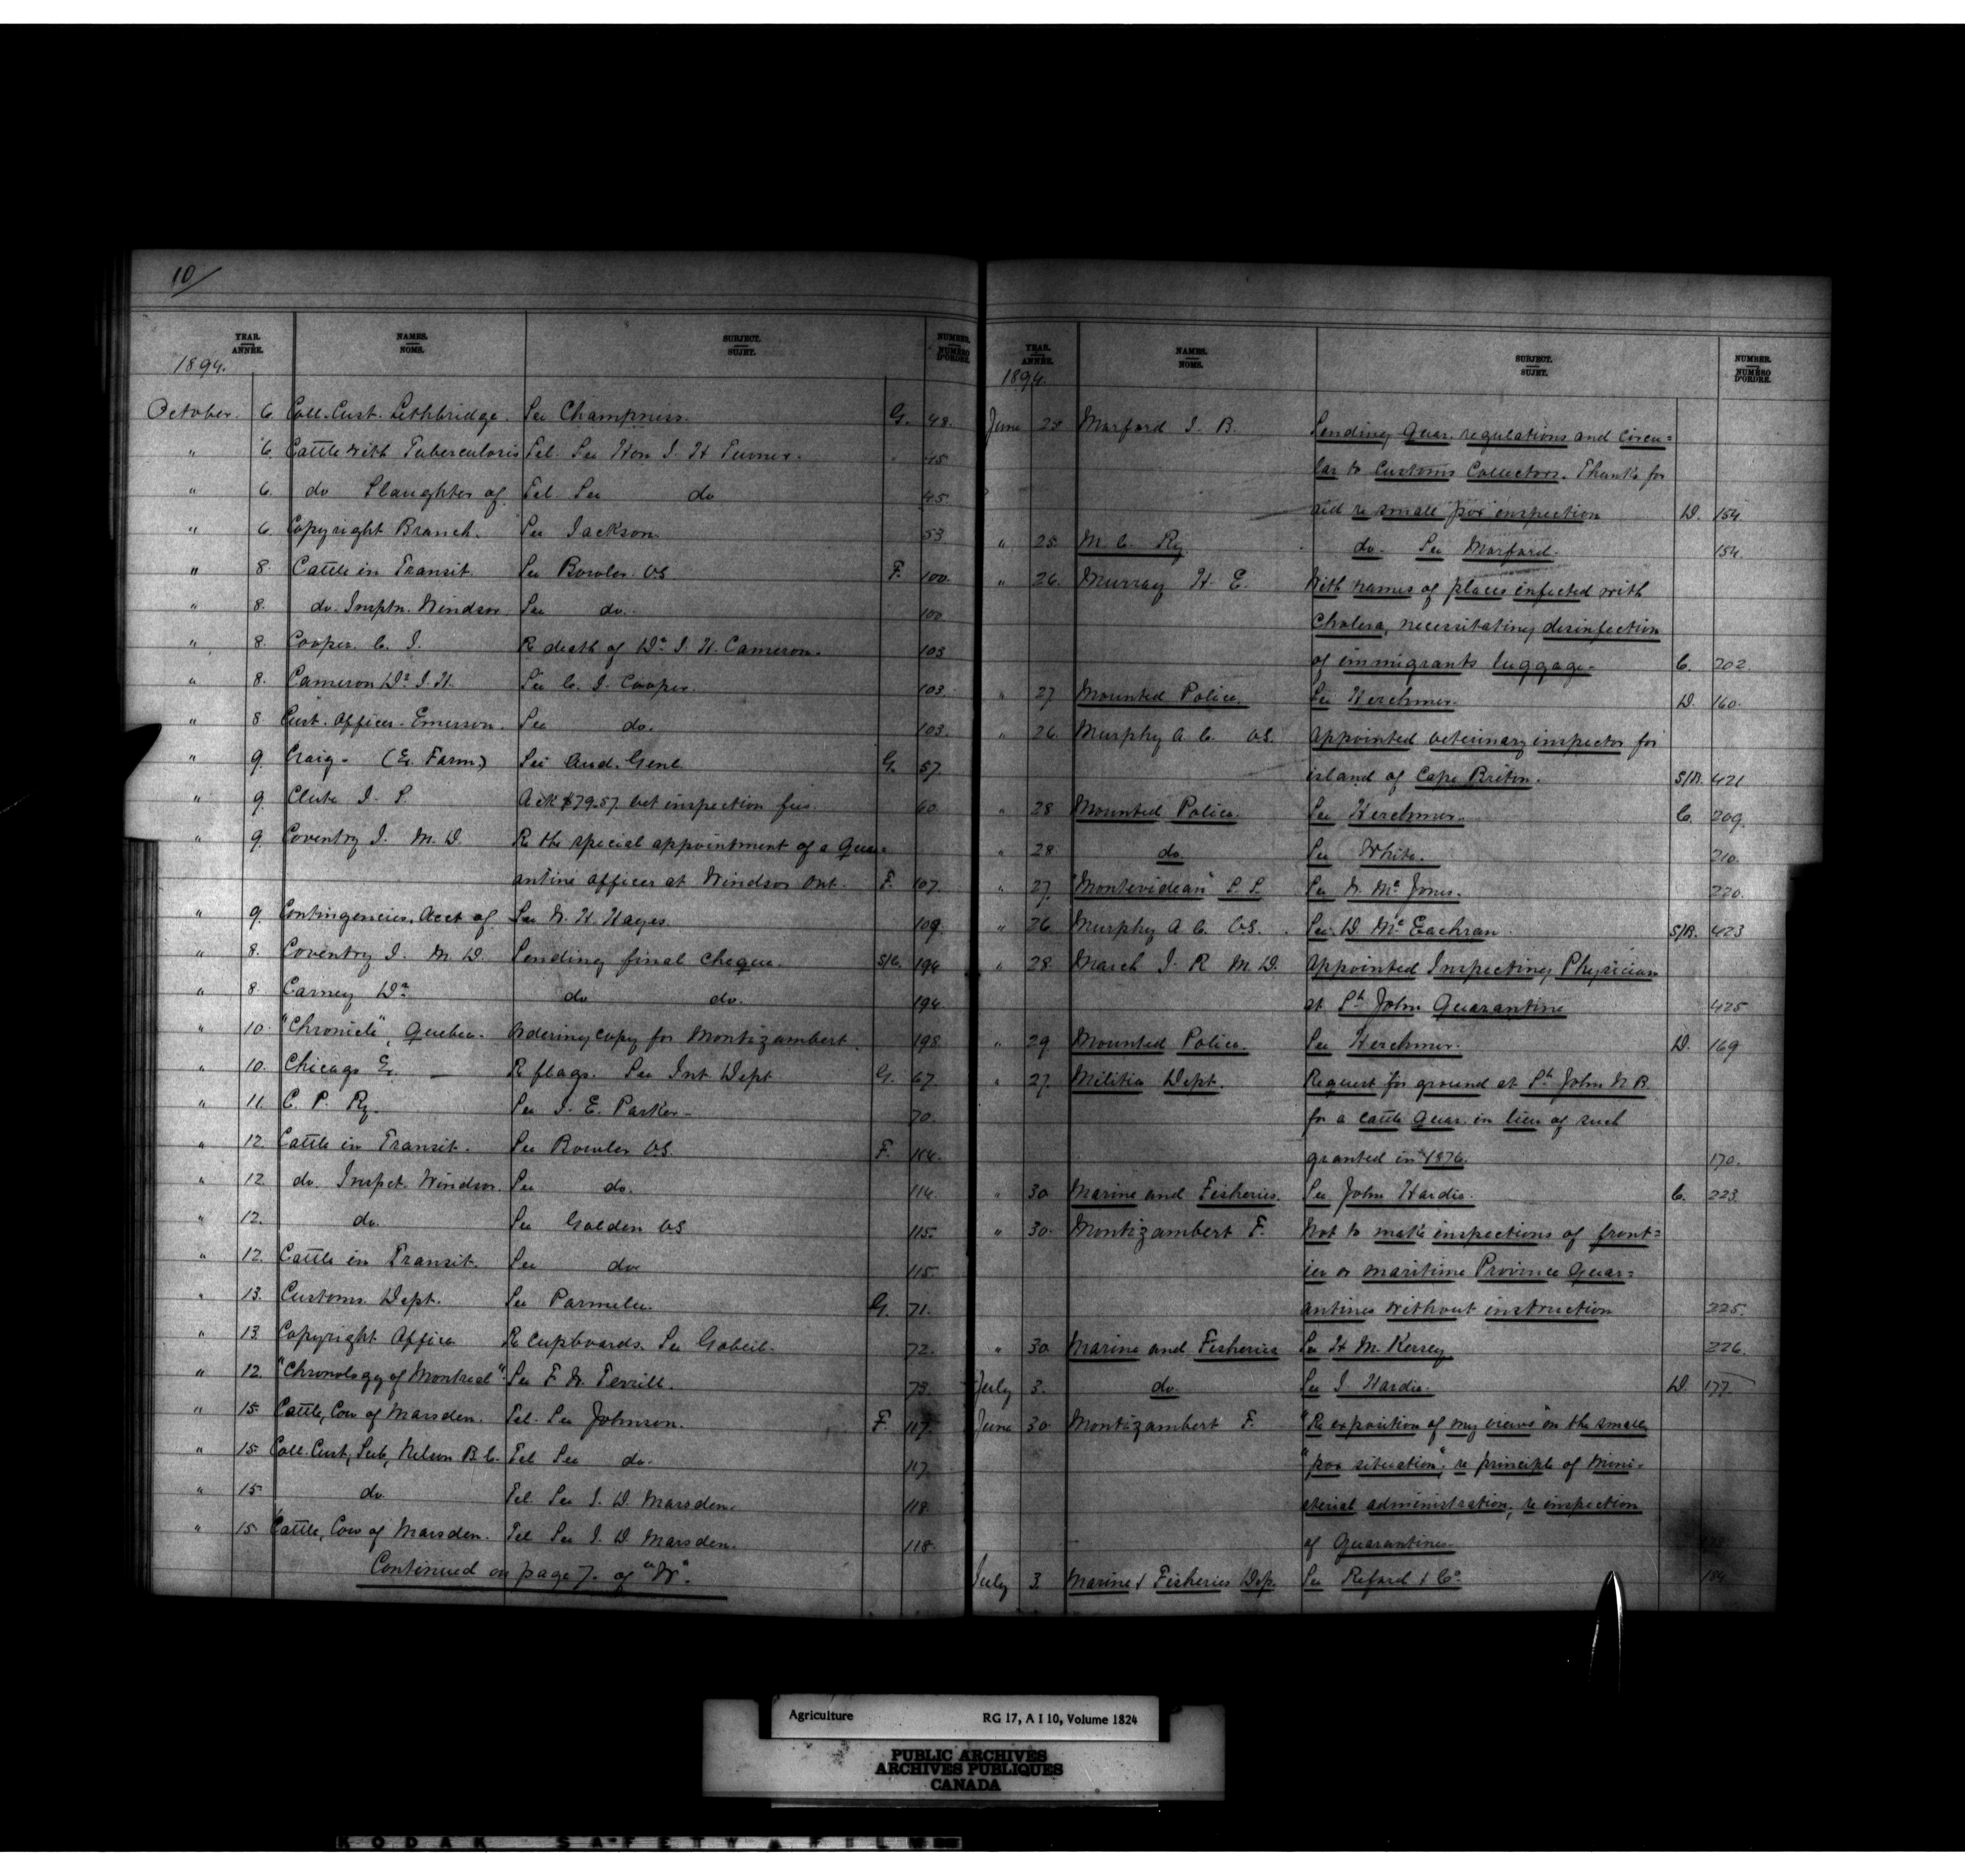 10/
YEAR. ANNÉE. NAMES. NOMS. SUBJECT. SUJET. NUMBER. NUMÉRO D'ORDRE.
1894.
October 6 Coll. Cust. Lethbridge. See Champness. G. 48.
" 6. Cattle with Tuberculosis Tel. See Hon J. H Turner. 45
" 6. do Slaughter of Tel See do 45
" 6 Copyright Branch. See Jackson 53
" 8. Cattle in Transit. See Bowler VS. F. 100.
" 8. do. Insptn. Windsor See do. 100
" 8. Cooper C. J. Re death of Dr. J. H. Cameron. 103
" 8. Cameron Dr J. H. See C. J. Cooper. 103.
" 8 Cust. Officer. Emerson. See do. 103.
" 9. Craig. (Ex. Farm.) See Aud. Genl. G. 57.
" 9. Clute J. S. Ack $79.57 vet inspection fees. 60
" 9. Coventry J. M. D. Re the special appointment of a Quar=
antine officer at Windsor Ont. F. 107.
" 9. Contingencies, Acct of See W. H. Hayes. 109.
" 8. Coventry J. M. D. Sending final cheque. S/C. 194
" 8 Carney Dr. do do. 194.
" 10. "Chronicle", Quebec. Ordering copy for Montizambert. 198
" 10. Chicago Ex. Re flags. See Int Dept G. 67.
" 11. C. P. Ry. See J. E. Parker 70.
" 12. Cattle in Transit. See Bowler VS. F. 114.
" 12. do. Inspct. Windsor. See do. 114.
" 12. do. See Golden VS 115.
" 12. Cattle in Transit. See do 115.
" 13. Customs Dept. See Parmelee. G. 71.
" 13. Copyright Office Re cupboards. See Gobeil. 72.
" 12. "Chronology of Montreal" See F. W. Terrill. 73.
" 15. Cattle, Cow of Marsden. Tel. See Johnson. F. 117.
" 15. Coll. Cust, Sub, Nelson B. C. Tel See do. 117.
" 15. do. Tel. See J. D. Marsden. 118.
" 15. Cattle, Cow of Marsden. Tel See J. D Marsden. 118.
Continued on page 7. of "W".
YEAR. ANNÉE. NAMES. NOMS. SUBJECT. SUJET. NUMBER. NUMÉRO D'ORDRE.
1894.
June 25 Morford J. B. Sending Quar. regulations and circu=
lar to Customs Collectors. Thanks for
aid re small pox inspection D. 154
" 25. M. C. Ry do. See Morford. 154.
" 26. Murray H. E. With names of places infected with
Cholera, necessitating disinfection
of immigrants luggage. C. 202
" 27 Mounted Police. See Herchmer. D. 160.
" 26. Murphy A. C. VS. Appointed veterinary inspector for
island of Cape Briton. S/B. 421
" 28 Mounted Police. See Herchmer. C. 209.
" 28. do. See White. 210.
" 27. "Montevidean" S. S. See W. Mc Jones. 220.
" 26 Murphy A. C. V.S. See D McEachran S/B. 423
" 28. March J. R M. D. Appointed Inspecting Physician
at St. John Quarantine 425
" 29 Mounted Police. See Herchmer. D. 169
" 27. Militia Dept. Request for ground at St. John N B.
for a cattle Quar. in lieu of such
granted in 1876. 170.
" 30 Marine and Fisheries. See John Hardie. C. 223.
" 30. Montizambert F. Not to make inspections of front=
ier or maritime Province Quar=
antines without instruction 225.
" 30 Marine and Fisheries See H M. Kersey 226.
July 3. do. See J. Hardie. D. 177
June 30 Montizambert F. "Re exposition of my views" on the small
"pox situation"; re principle of Mini=
sterial administration, re inspection
of Quarantines.
July 3. Marine & Fisheries Dep. See Reford & Co. 184
Agriculture RG 17, A I 10, Volume 1824
PUBLIC ARCHIVES
ARCHIVES PUBLIQUES
CANADA
KODAK SAFETY FILM